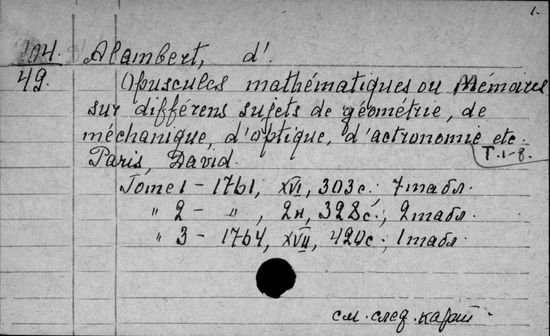 1.
104. Alambert, d'.
49. Opuscules mathématiques ou Mémoires
sur différens sujets de géométrie, de
méchanique, d'optique, d'actronomie etc.
Paris, David. T. 1-8.
Tome 1 - 1761, XVI, 303 с. 7 табл.
" 2 - " , 2н, 328 с., 2 табл.
" 3 - 1764, XVII, 420 с., 1 табл.
см. след. карт